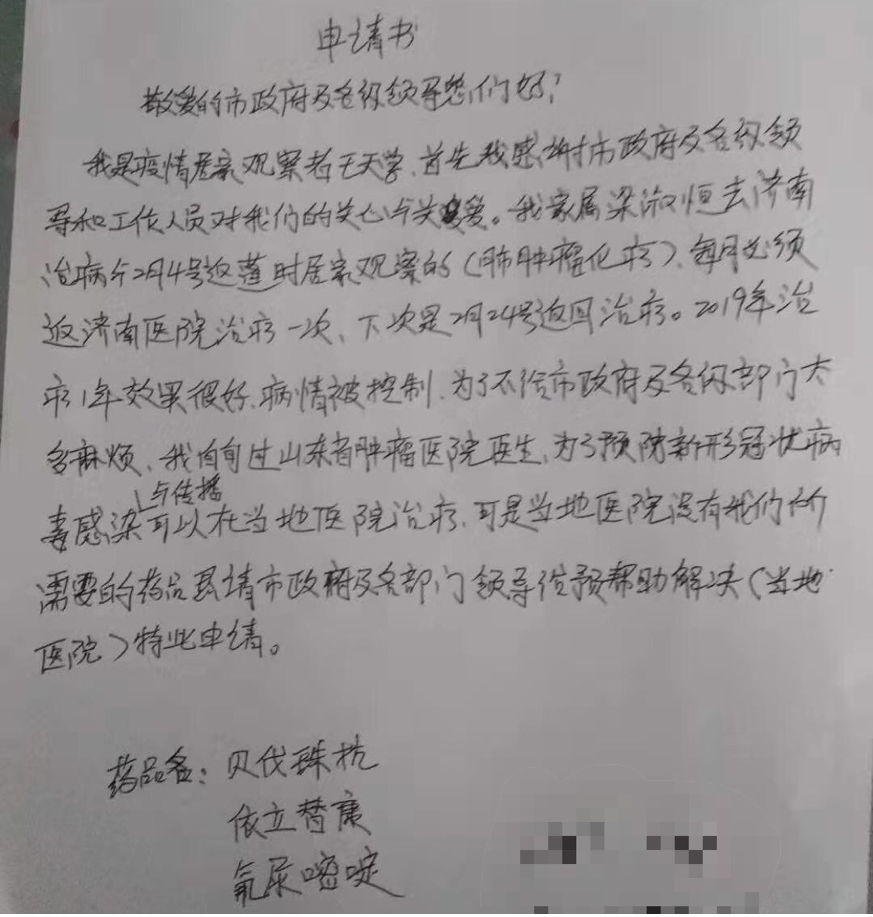 申请书
敬爱的市政府及各级领导您们好！
我是疫情居家观察者王天学，首先我感谢市政府及各级领
导和工作人员对我们的关心与关爱。我家属梁淑恒去济南
治病于2月4号返蓬时居家观察的（肺肿瘤化疗）、每月必须
返济南医院治疗一次、下次是2月24号返回治疗。2019年治
疗1年效果很好、病情被控制、为了不给市政府及各级部门太
多麻烦、我咨询过山东省肿瘤医院医生、为了预防新形冠状病
毒感染与传播可以在当地医院治疗、可是当地医院没有我们
需要的药品恳请市政府及各部门领导给预帮助解决（当地
医院）特此申请。
药品名：贝伐珠抗
依立替康
氟尿嘧啶